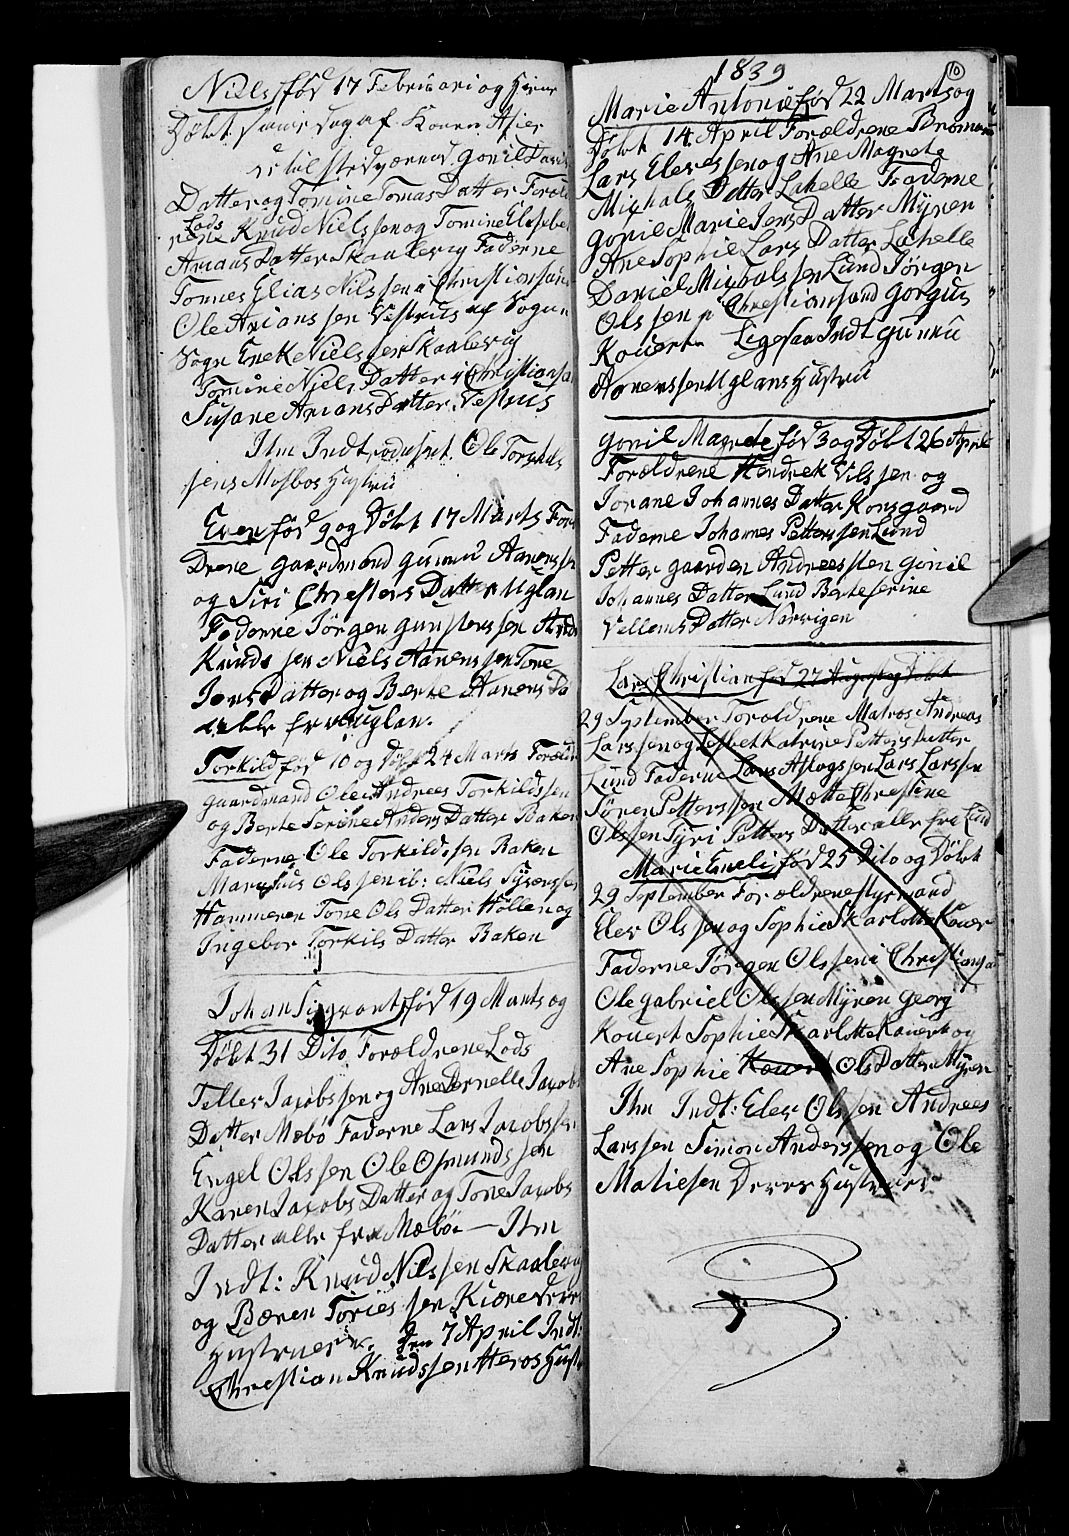 Niels fød 17 Februari og Hieme
Døbt samme dag af Konen Asier
til stedværned Gonil Davids
Datter og Tomine Tomas Datter Foræl
Lods
rene Knud Nielssen og Tomine Elsebet
Arians Datter Skaalevig Faderne
Tønnes Elias Nilssen i Christiansand
Ole Arianssen Vestnus af Sogne
Sogn Enek Nielssen Skaalevig
Tomine Niels Datter i Christiansan
Susane Arians Datter Vestnus
Ihm Indtroduseret Ole Torkels
sens Mosbos Hustru
Even fød 9 og Døbt 17 Marts Foræl
Drene Gaardmand Gunnu Aanenssen
og Siri Christens Datter Uglan
Faderne Jørgen Gunstenssen
Knudssen Niels Aanenssen Tone
Jens Datter og Berte Aanens Da
alle fra Uglan.
Torkild fød 10 og Døbt 24 Marts Foræld
gaardmand Ole Andrees Torkildssen
og Berte Serine Anders Datter Raken
Faderne Ole Torkildssen Raken
Markus Olssen ib: Niels Sørenssen
Hammeren Tone Ols Datter Høllen og
Ingebor Torkils Datter Raken
Johan Sigvart fød 19 Marts og
Døbt 31 Dito Forældrene Lods
Tellev Jacobssen og Ane Pernelle Jacobs
Datter Mæbø Faderne Lars Jacobssen
Engel Olssen Ole Osmundssen
Karen Jacobs Datter og Tone Jacobs
Datter alle fra Mæbø — Ihm
Indt: Knud Nilssen Skaalevig
og Bæren Toriessen Kiære Derres
Hustruer. den 7 April Indt:
Christian Knudssen Aaros Hust
10
1839
Marie Antonie fød 22 Marts og
Døbt 14 April Forældrene
Lars Elevessen og Ane Magrete
Mickals Datter Lahelle Faderne
Gonil Marie Jens Datter Myren
Ane Sophie Lars Datter Lahelle
Daniel Mickalssen Lund Jørgen
Olssen i Christiansand Gorgus
Kouert Ligesaa Indt Gunnu
Aanenssen Uglans Hustru
Gonil Magrete fød 3 og Døbt 26 April
Forældrene Hendrek Vilssen og
Jorane Johannes Datter Korsgaard
Faderne Johannes Petterssen Lund
Petter gaarden Andreessen Gonil
Johannes Datter Lund Berte Serine
Vellems Datter Narvigen
Lars Christian fød 27 August og Døbt
29 September Forældrene Matros Andreas
Larssen og Lisbet Katrine Petters Datter
Lund Faderne Lars Aslagssen Lars Larssen
Søren Petterssen Mætte Chrestine
Olssen Syri Petters Datter alle fra Lund
Marie Emeli fød 25 Dito og Døbt
29 September Forældrene Styrmand
Elev Olssen og Sophie Skarlotte Kouer
Faderne Jørgen Olssen i Christiansa
Ole Gabriel Olssen Myren Georg
Kouert Sophie Skarlotte Kouert og
Ane Sophie Kouert Ols Datter Myren
Ihm Indt: Elev Olssen Andrees
Larssen Simon Anderssen og Ole
Matiesen Deres Hustruer